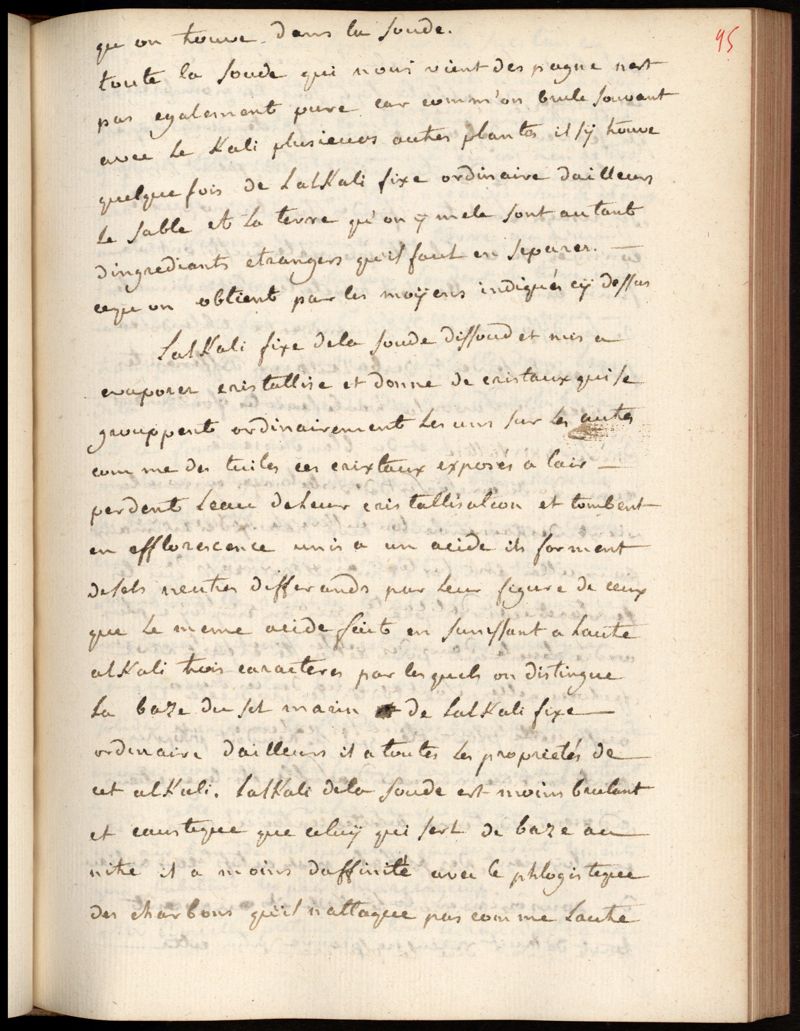 95
qu on trouve dans la soude.
toute la soude qui nous vient despagne nest
pas egalement pure car comm'on brule souvant
avec le Kali plusieurs autres plantes il sÿ trouve
quelque fois de LalKali fixe ordinaire dailleurs
Le sable et La terre qu'on ÿ mele sont autant
dingrediants etrangers qu'il faut en separer. —
cequ on obtient par les moÿens indiqués cÿ dessus
LalKali fixe dela soude dissoud et mis a
evaporer cristallise et donne de cristaux qui se
grouppent ordinairement Les uns sur les autres
comme des tuiles ces crixtaux exposés a lair —
perdent Leau deLeur cristallisation et tombent
en efflorescence unis a un acide ils forment
desels neutres differands par Leur figure de ceux
que Le meme acide fait en sunissant a Lautre
alKali trois caracteres par lesquels on distingue
La baze du sel marin de LalKali fixe —
ordinaire dailleurs il a toutes Les proprietés de —
cet alKali. LalKali dela soude est moins brulant
et caustique que celuÿ qui sert de baze au —
nitre il a moins daffinité avec le phlogistique
des charbons qu'il nattaque pas comme Lautre